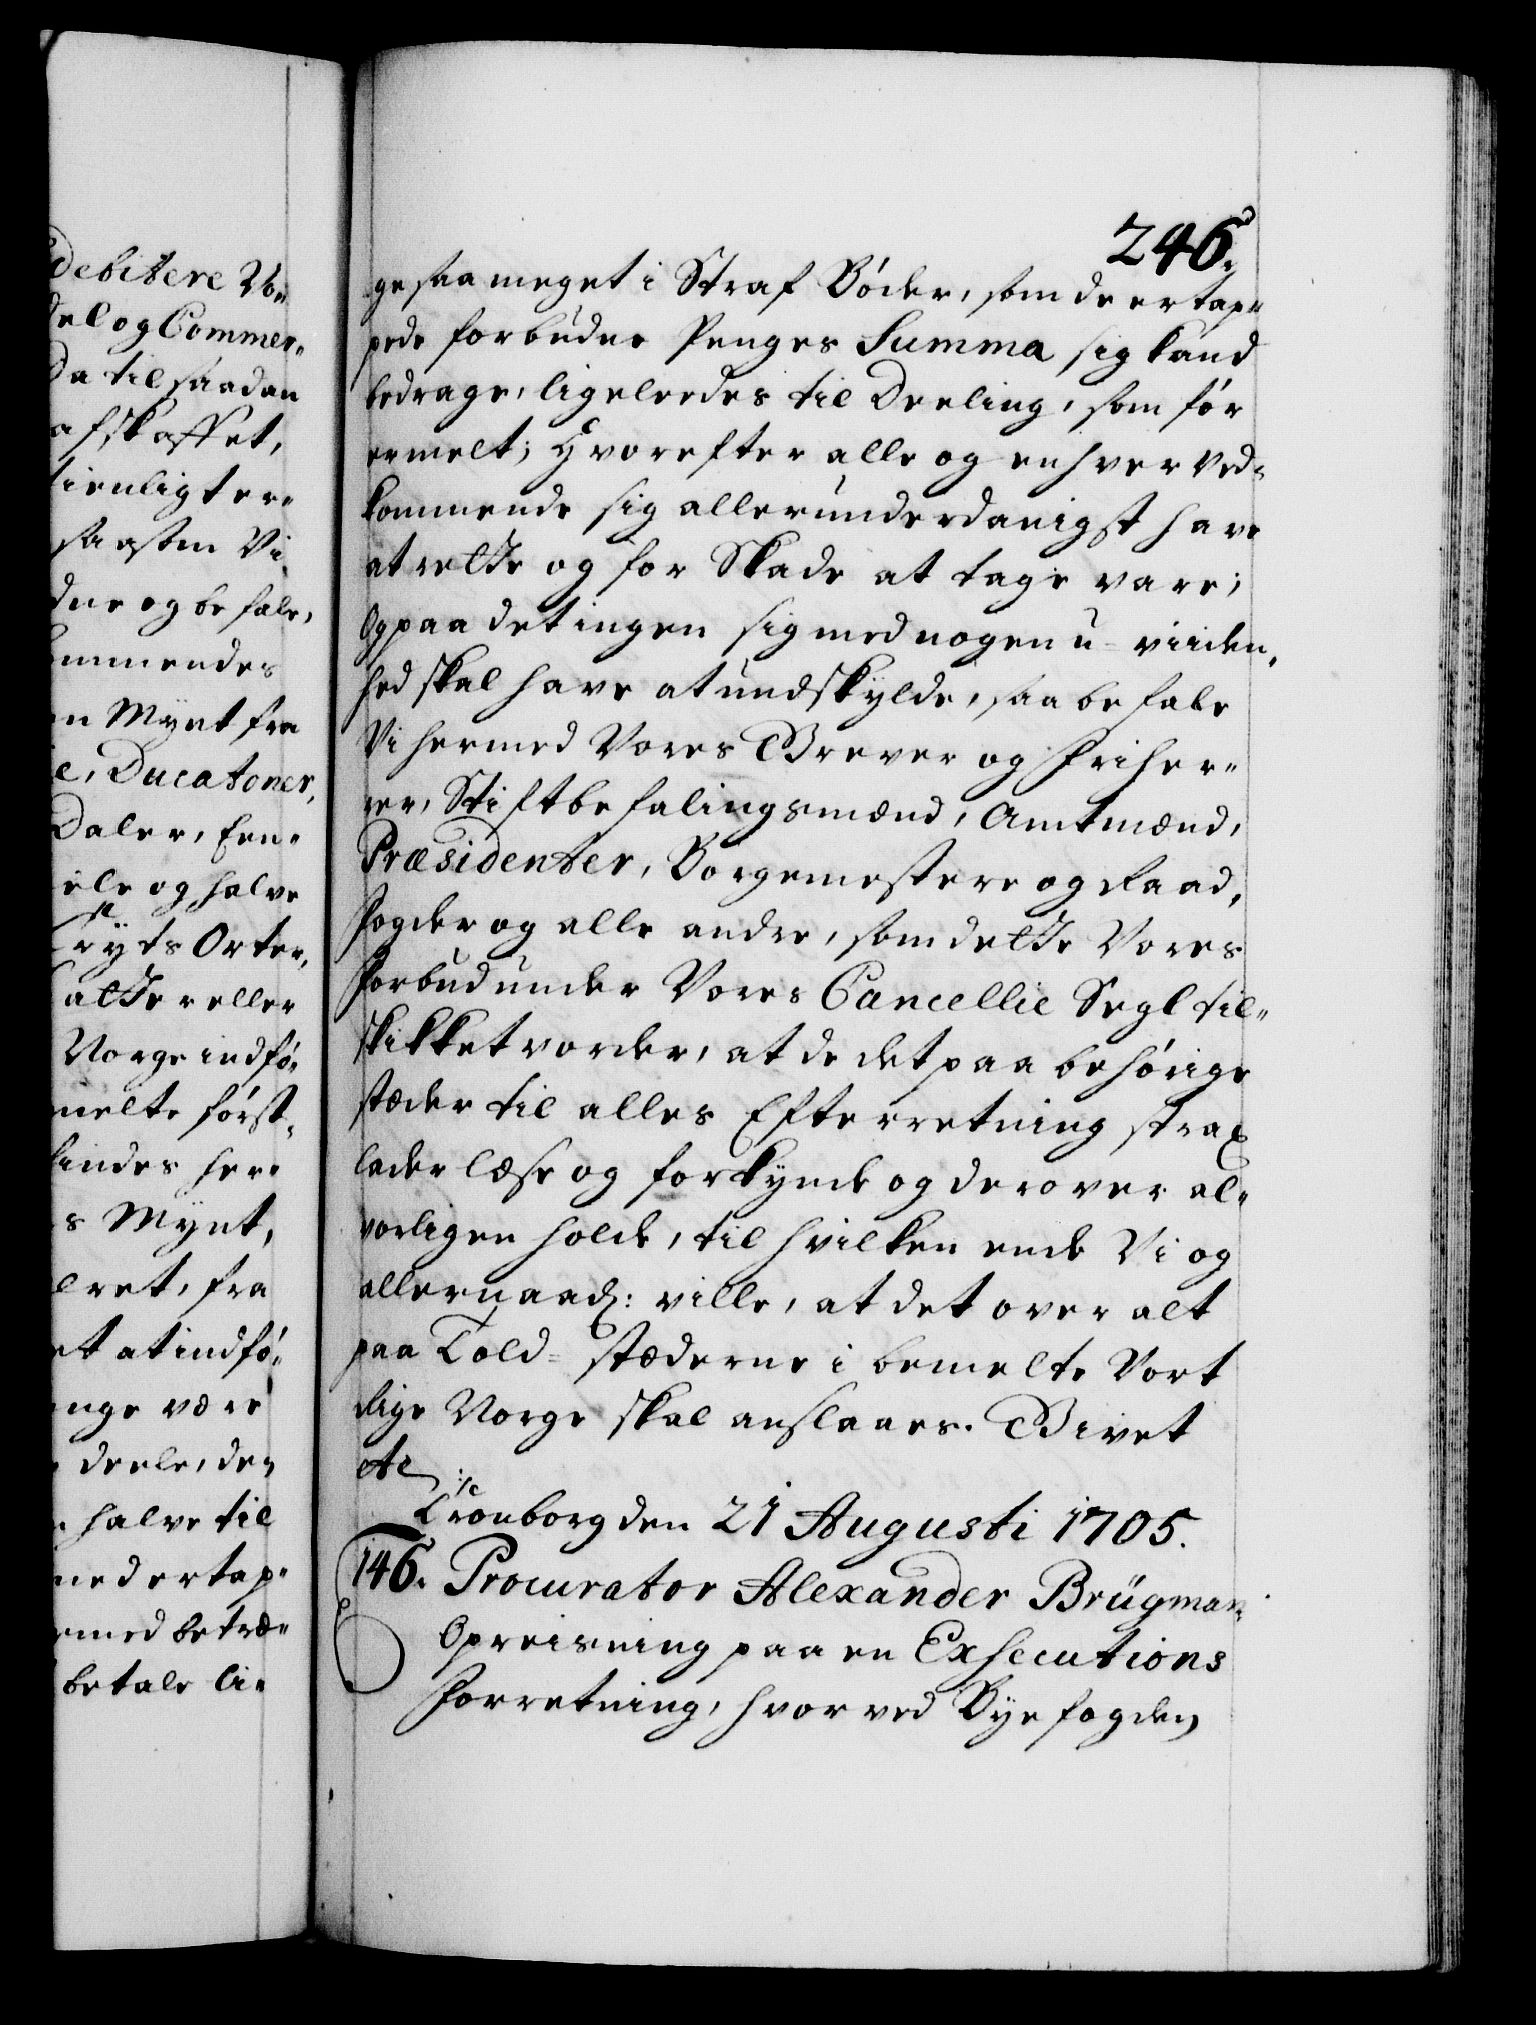 debitere Vo-
del og Commer-
Da til saadan
afskaffet,
tienligt er-
saasom Vi
dne og befale,
kommendes
en Mynt fra
e, Ducatoner,
Daler, Een-
ele og halve
Kryds Orter,
atter eller
Norge indfø-
melte først-
findes her-
s Mynt,
eret, fra
et at indfø-
nge være
deele, den
halve til
med ertap-
med betræ-
betale li-
246.
ge saa meget i Straf Bøder, som de ertap-
pede forbudne Penges Summa sig kand
bedrage, ligeleedes til Deeling, som før
ermelt; Hvorefter alle og enhver ved-
kommende sig allerunderdanigst have
at rette og for Skade at tage vare;
Og paa det ingen sig med nogen u-viiden-
hed skal have at undskylde, saa befale
Vi hermed Vores Grever og Friher-
rer, Stiftbefalingsmænd, Amtmænd,
Præsidenter, Borgemestere og Raad,
Fogder og alle andre, som dette Vores
Forbud under Vores Cancellie Segl til-
skikket vorder, at de det paa behørige
stæder til alles Efterretning strax
lader læse og forkynde og derover al-
vorligen holde, til hvilken ende Vi og
allernaad: ville, at det over alt
paa Told-stæderne i bemelte Vort
Rige Norge skal anslaaes. Givet
etc
Cronborg den 21 Augusti 1705.
146. Procurator Alexander Brügman
Opreisning paa en Exsecutions
Forretning, hvorved Byefogden